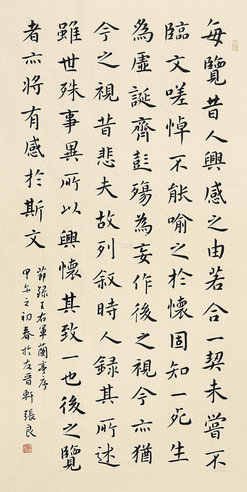 每覽昔人興感之由若合一契未嘗不
臨文嗟悼不能喻之於懷固知一死生
為虛誕齊彭殤為妄作後之視今亦猶
今之視昔悲夫故列叙時人録其所述
雖世殊事異所以興懷其致一也後之覽
者亦將有感於斯文
節録王右軍蘭亭序
甲午之初春於友晉軒張良